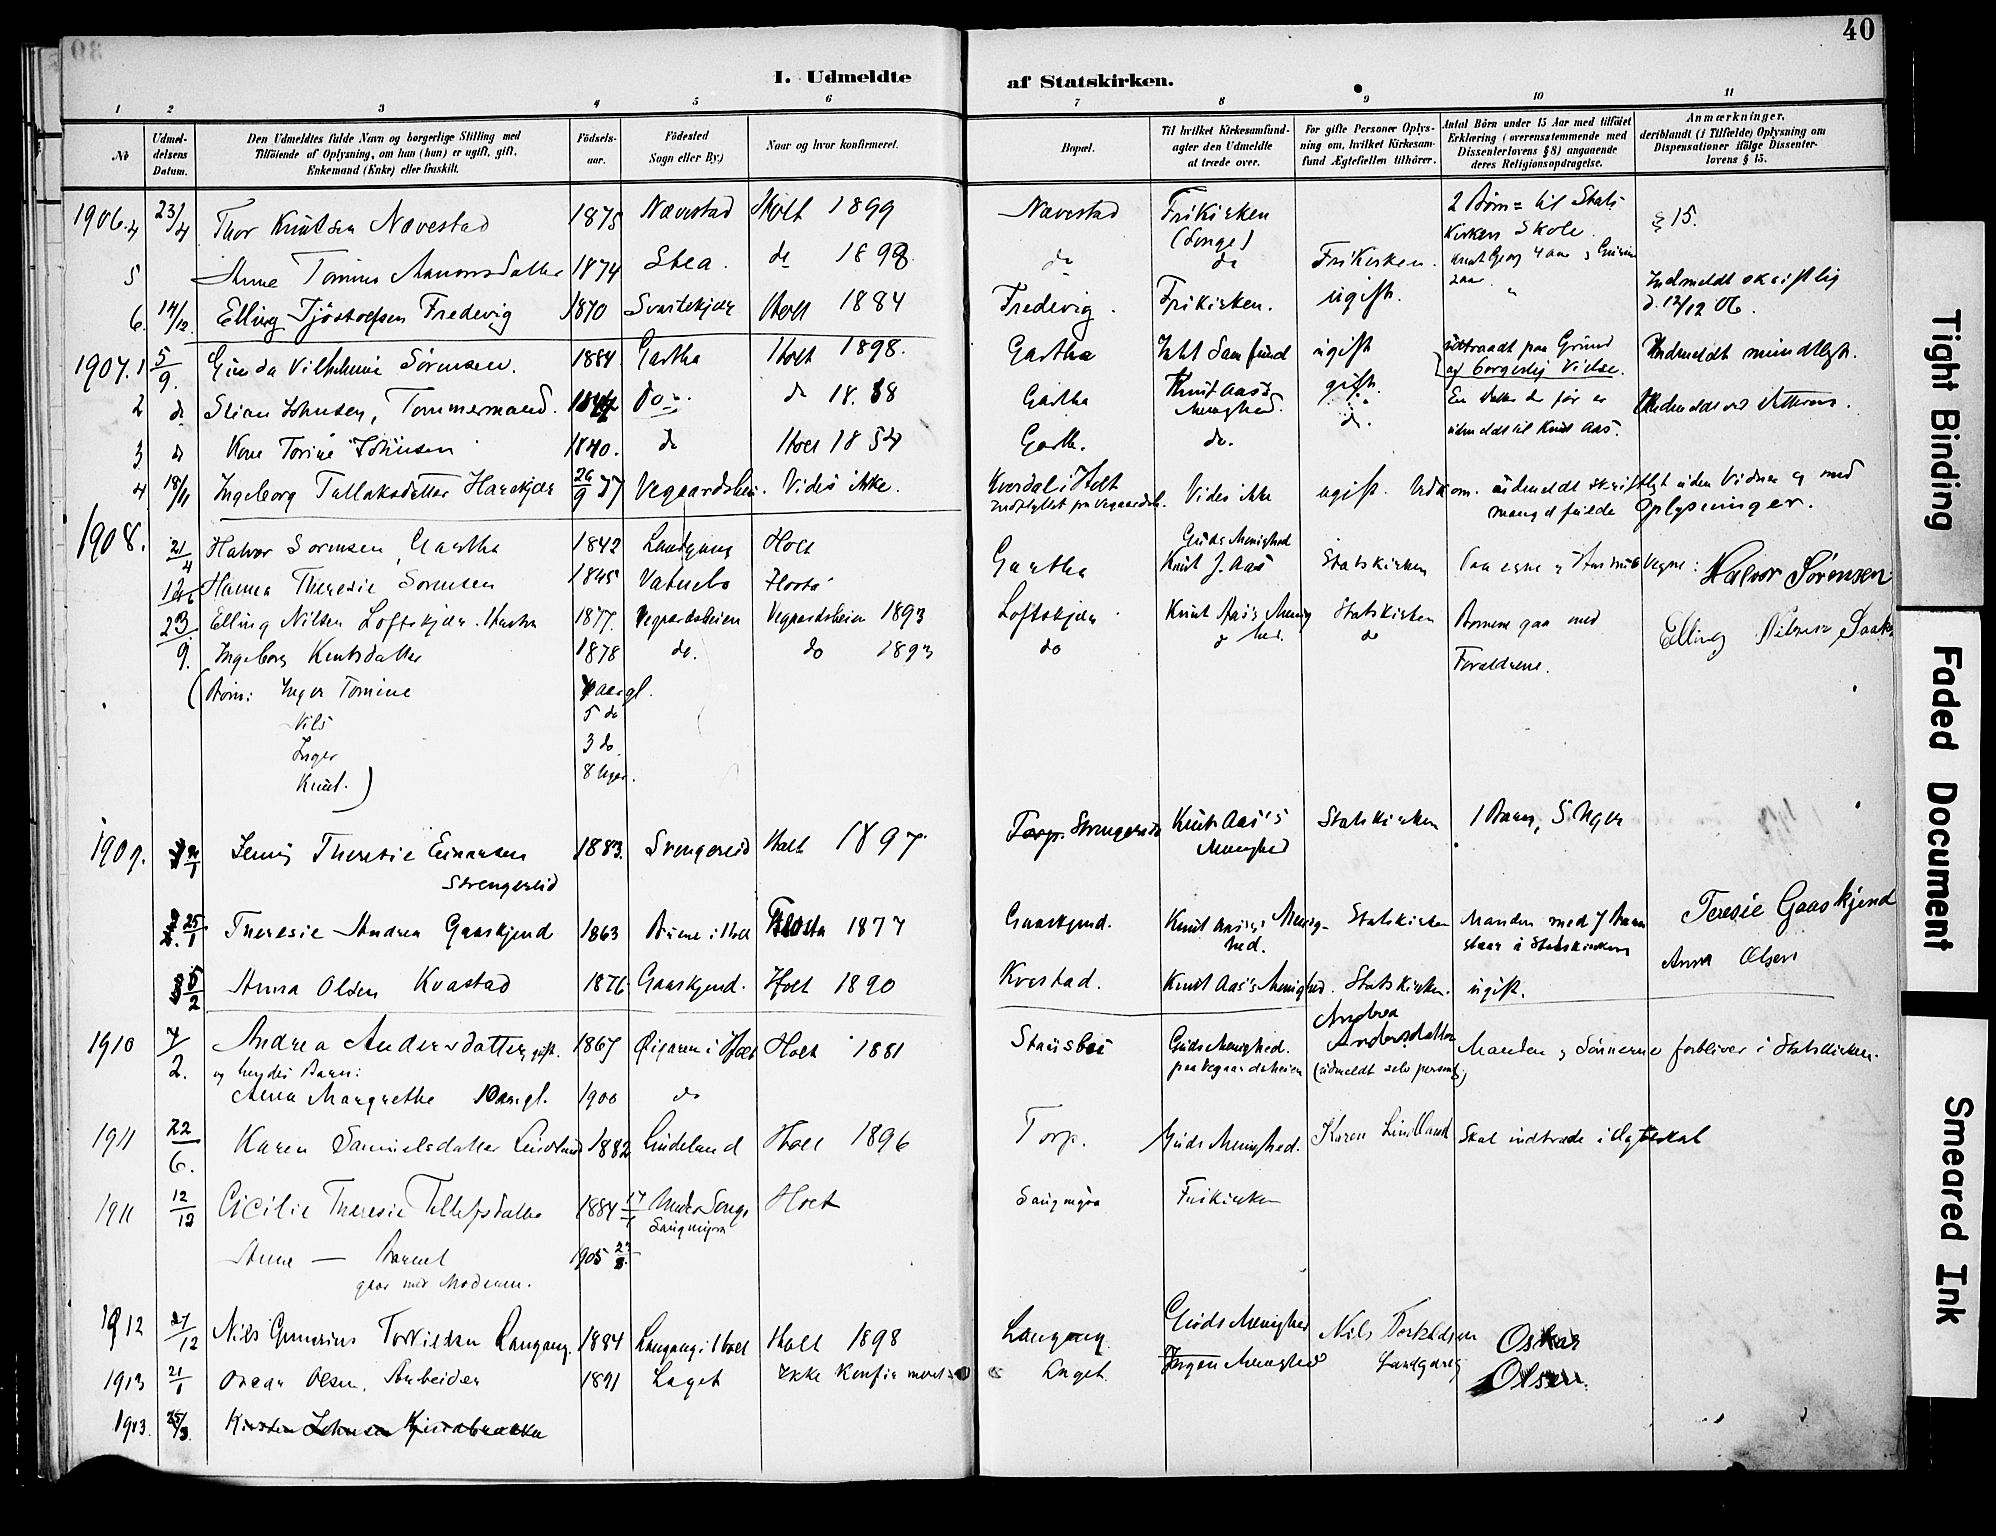 40
I. Udmeldte af Statskirken.
1 2 3 4 5 6 7 8 9 10 11
No
Udmeldelsens Datum.
Den Udmeldtes fulde Navn og borgerlige Stilling med
Tilföiende af Oplysning, om han (hun) er ugift, gift,
Enkemand (Enke) eller fraskilt.
Födselsaar.
Födested
Sogn eller By.)
Naar og hvor konfirmeret.
Bopæl.
Til hvilket Kirkesamfund
agter den Udmeldte
at træde over.
For gifte Personer Oplysning om, hvilket Kirkesamfund Ægtefællen tilhörer.
Antal Börn under 15 Aar med tilföiet
Erklæring (overensstemmende med
Dissenterlovens § 8) angaaende
deres Religionsopdragelse.
Anmærkninger,
deriblandt (i Tilfælde) Oplysning om
Dispensationer ifölge Dissenterlovens § 15.
1906. 4 23/4 Thor Knutsen Nævestad 1875 Nævestad Holt 1899 Nævestad Frikirken (Songe) 2 Børn = til Statskirkens Skole § 15.
5 Anne Tomine Aanonsdatter 1874 Stea. do 1898 do do Frikirken.
6. 14/12 Elling Tjöstolfsen Fredevig 1870 Svartekjær Holt 1884 Fredevig. Frikirken. ugift. Indmeldt skriftlig d. 12/12 06.
1907. 1 5/9. Gunda Vilhelmine Sörensen. 1884 Gartha Holt 1898. Gartha Intet Samfund ugift udtraadt paa Grund af borgerlig Vielse. Indmeldt mundtlygt.
2 do Stian Johnsen, Tommermand. do do Gartha Knut Aas's Menighed. gift.
3 do Kone Torine Johnsen 1840. do Holt 1854 Garth. do. do. udmeldt til Knut Aas.
4 18/11 Ingeborg Tallaksdatter Harekjær 26/9 77 Vegaardshei. Vides ikke. Kverdal i Holt Vides ikke ugift. udmeldt skriftlygt uden Vidner og med mangelfulde Oplysninger.
1908. 21/4 Halvor Sørensen Gartha 1842 Landgang Holt Gartha Guds Menighed Knut J. Aas Statskirken Paa egne og Hustrus Vegne: Halvor Sörensen
Hanna Theresie Sørensen 1845 Vatnebo
23/9. Elling Nilsen Loftskjær. 1877. Vegaardsheien Vegaardsheien 1893 Loftskjær Knut Aas's Menighed. Statskirken Børnene gaa med Forældrene. Elling Nilsen
Ingeborg Knutsdatter 1878 do. do 1893 do do
(Børn: Inger Tomine aar gl.
Nils 5 do
Inger 3 do
Knut.) 8 Uger.
1909. Jenny Theresie Einarsen Strengereid 1883. Strengereid Holt 1897 Strengereid Knut Aas's Menighed Statskirken 1 Barn, 5 Uger
25/1 Theresie Andrea Gaaskjend 1863 Holt Flosta 1877 Gaaskjend. Knut Aas's Menighed. Statskirken Manden med 7 Børn staar i Statskirken Teresie Gaaskjend
5/2 Anna Olsen Kvastad 1876 Gaaskjend. Holt 1890 Kvestad. Knut Aas's Menighed. Statskirken. ugift. Anna Olsen
1910 7/2. Andrea Andersdatter, gift. 1867 Holt 1881 Guds Menighed. paa Vegaardsheien Andrea Andersdatter (udmeldt selv personlig) Manden og Sønnerne forbliver i Statskirken.
og hendes Barn:
Anna Margrethe 10 aar gl. 1900 do
1911 22/6. Karen Samuelsdatter Lindland 1882 Lindeland Holt 1896 Torp. Guds Menighed. Karen Lindland Skal indtræde i Ægteskab
1911 12/12 Cicilie Theresie Tellefsdatter 1884 Songe Saugmyra Holt Saugmyra Frikirken
Anne — Barnet 1905
gaar med Moderen.
1912 27/12 Nils Gunarius Terkildsen Langang. 1884 Langang i Holt Holt 1898 Langang Guds Menighed Nils Terkildsen Landgang
1913 21/1 Oscar Olsen, Arbeider 1891 Laget Ikke Konfirmeret Laget Menighed Oskar Olsen
1913. 25/3 Johnsen
Tight Binding
Faded Document
Smeared Ink